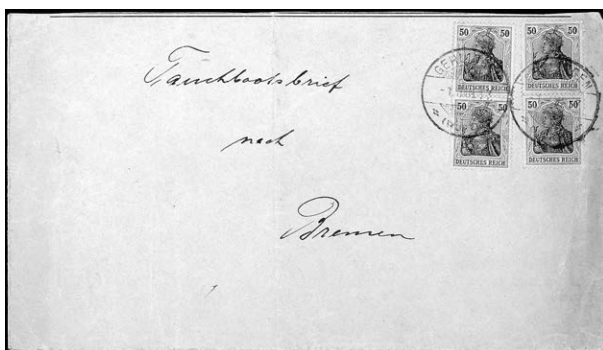 Tauchbootsbrief
nach
Bremen
50 50
50 50
DEUTSCHES REICH
DEUTSCHES REICH
50
50
DEUTSCHES REICH
DEUTSCHES REICH